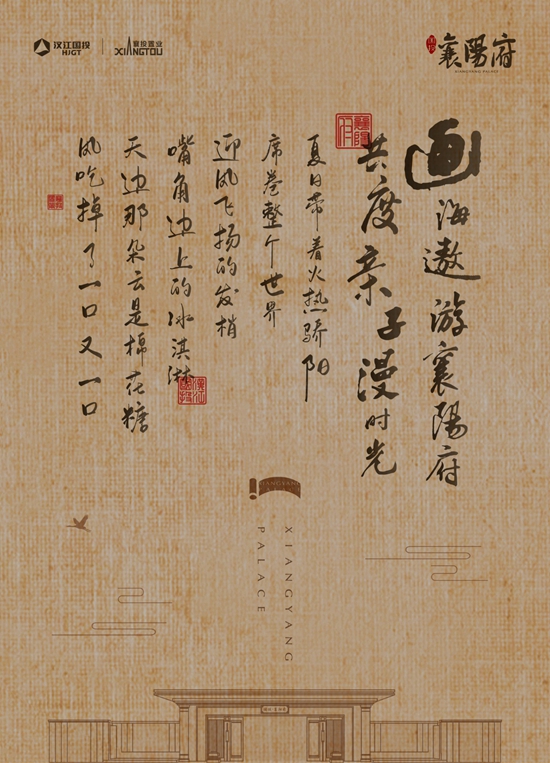 汉江国投
HJGT
襄投置业
XIANGTOU
襄陽府
XIANGYANG PALACE
画海遨游襄陽府
共度亲子漫时光
夏日带着火热骄阳
席卷整个世界
迎风飞扬的发梢
嘴角边上的冰淇淋
天边那朵云是棉花糖
风吃掉了一口又一口
XIANGYANG
XIANGYANG
PALACE